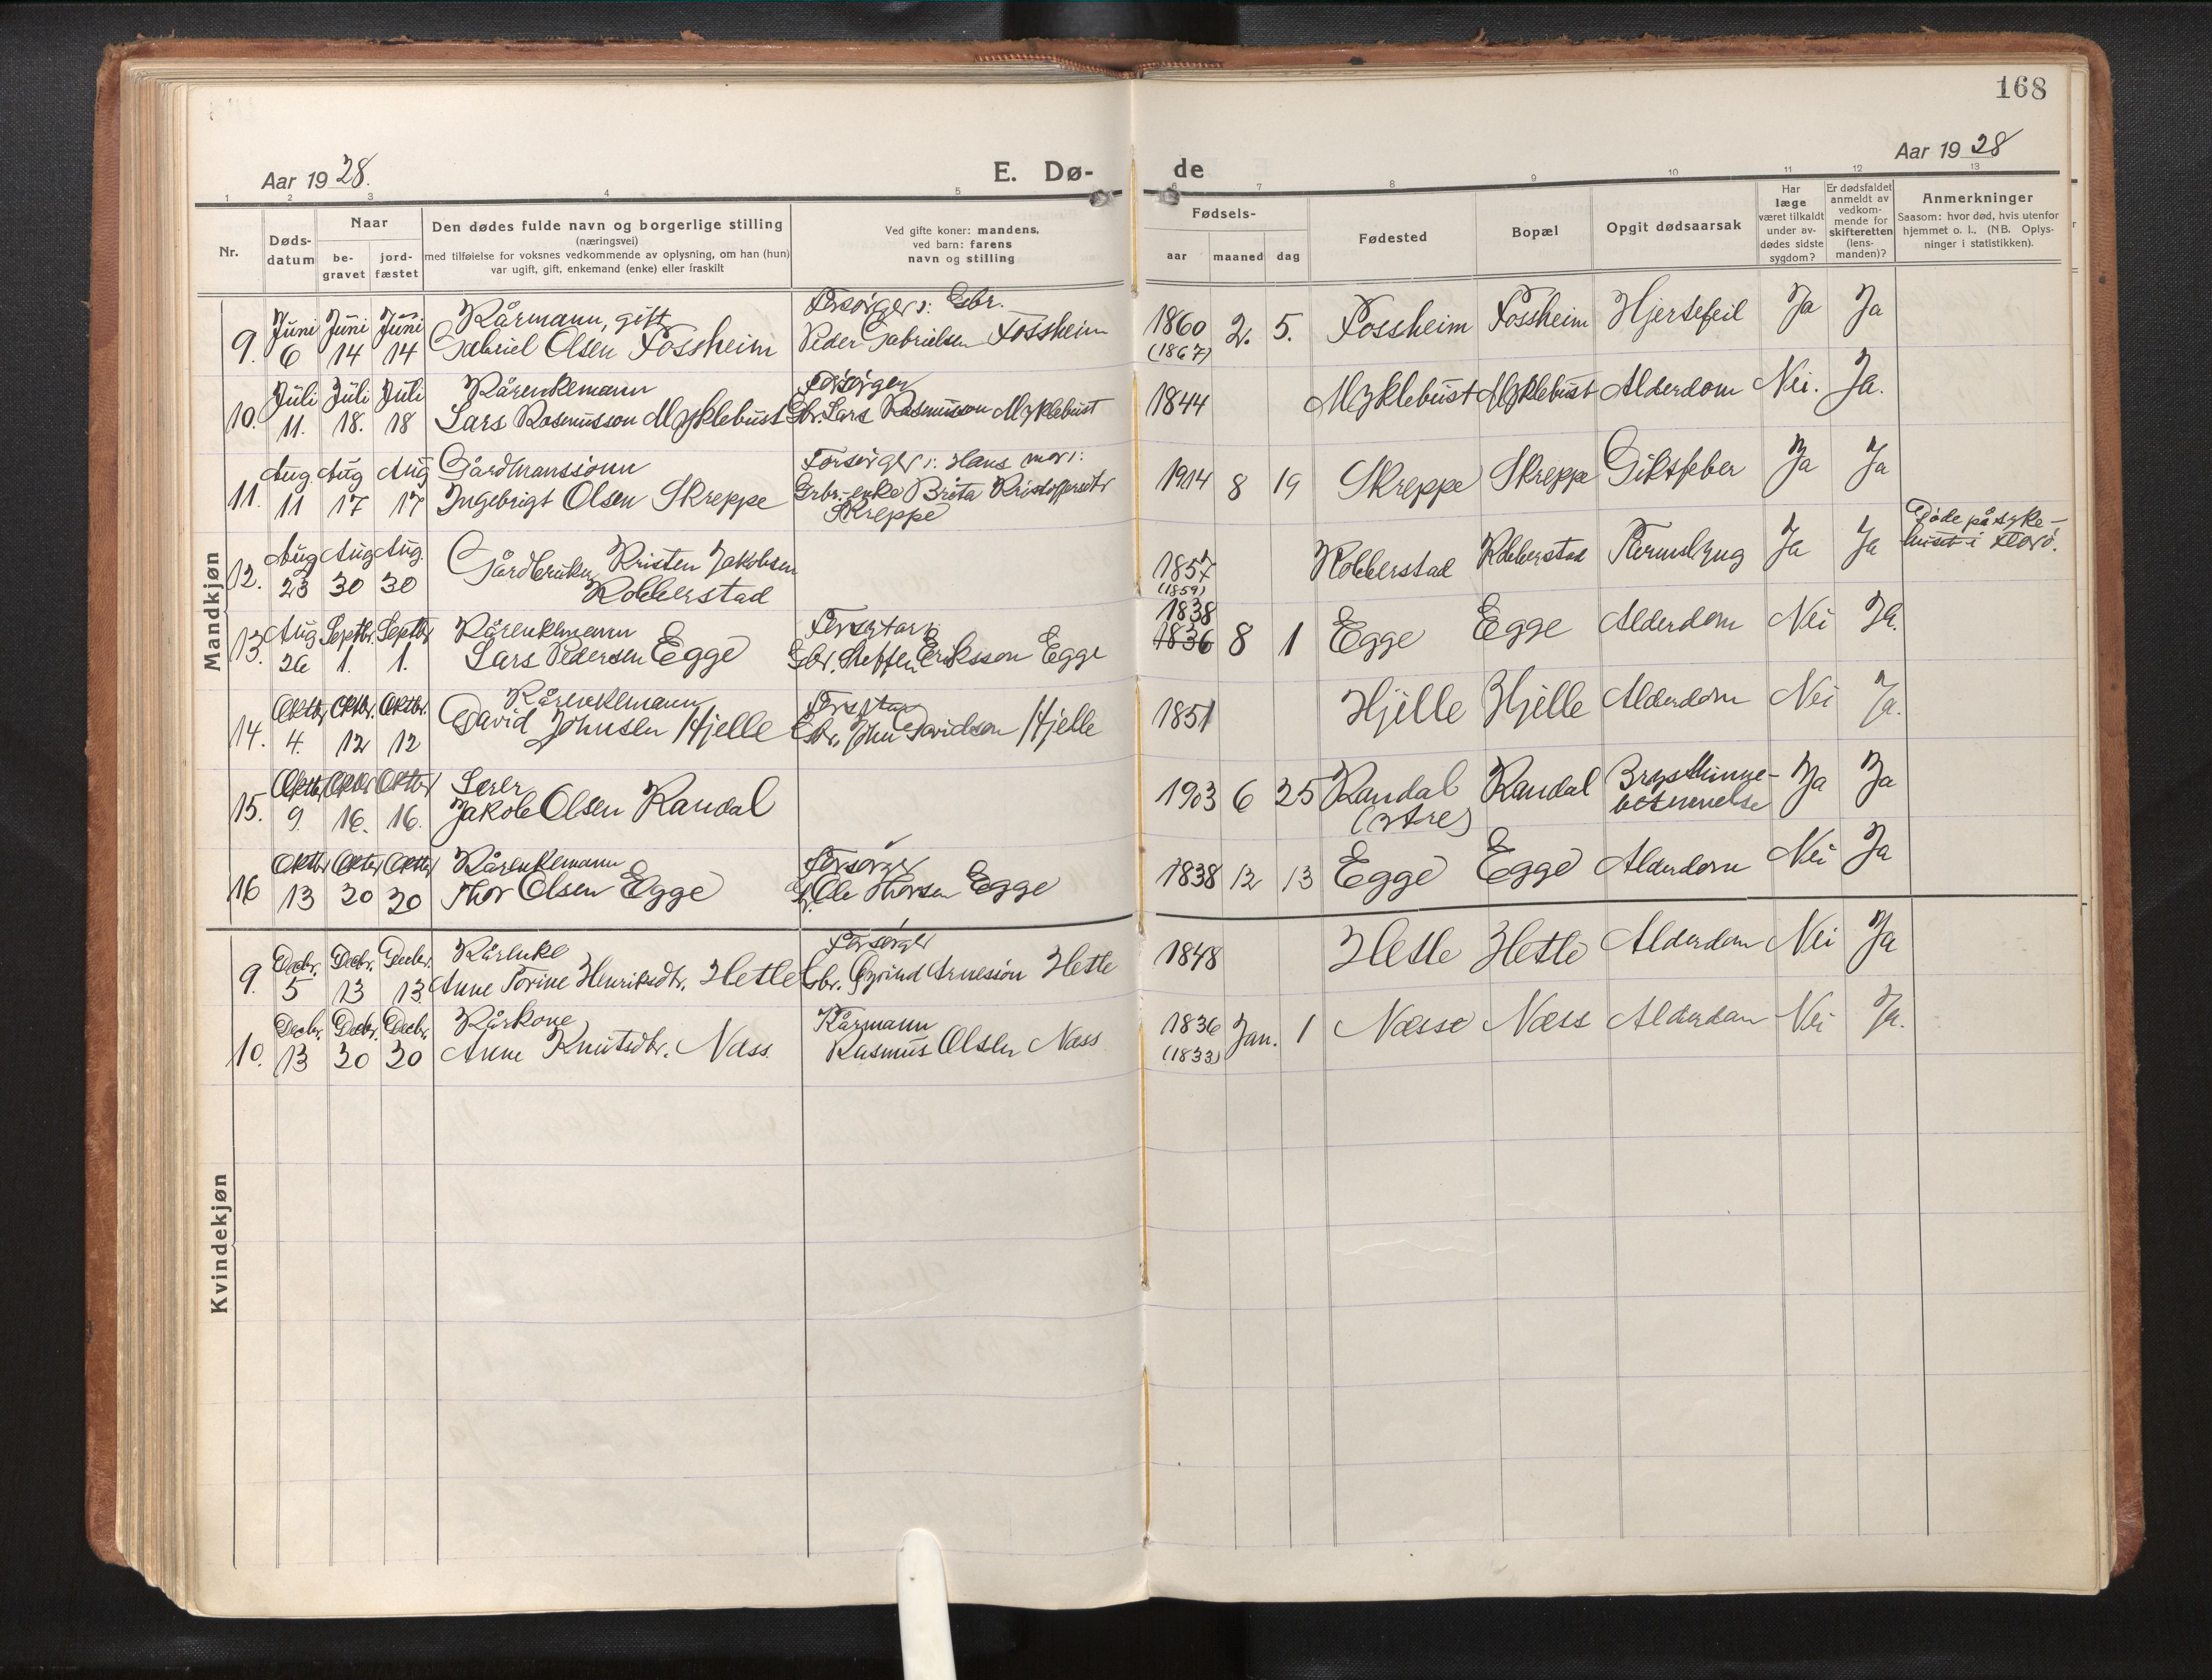 168
Aar 19 28.
E. Dø-
de
Aar 19 28
1 2 3 4 5 6 7 8 9 10 11 12 13
Nr.
Døds-
datum
Naar
be-
gravet
jord-
fæstet
Den dødes fulde navn og borgerlige stilling
(næringsvei)
med tilføielse for voksnes vedkommende av oplysning, om han (hun)
var ugift, gift, enkemand (enke) eller fraskilt
Ved gifte koner: mandens,
ved barn: farens
navn og stilling
Fødsels-
aar maaned dag
Fødested
Bopæl
Opgit dødsaarsak
Har
læge
været tilkaldt
under av-
dødes sidste
sygdom?
Er dødsfaldet
anmeldt av
vedkom-
mende for
skifteretten
(lens-
manden)?
Anmerkninger
Saasom: hvor død, hvis utenfor
hjemmet o. l., (NB. Oplys-
ninger i statistikken).
Mandkjøn
9. Juni 6 Juni 14 Juni 14 Kårmann, gift
Gabriel Olsen Fossheim
Forsörger: Gbr.
Peder Gabrielsen Fossheim
1860 (1867) 2. 5. Fossheim Fossheim Hjertefeil Ja Ja
10. Juli 11. Juli 18. Juli 18 Kårenkemann
Lars Rasmusson Myklebust
Forsörger
Gbr. Lars Rasmusson Myklebust
1844 Myklebust Myklebust Alderdom Nei. Ja.
11. Aug 11 Aug 17 Aug 17 Gårdmannssönn
Ingebrigt Olsen Skreppe
Forsörger: Hans mor:
Grbr.-enke Brita Kristoffersdtr
Skreppe
1914 8 19 Skreppe Skreppe Giktfeber Ja Ja
12. Aug 23 Aug 30 Aug. 30 Gårdbruker Kristen Jakobsen
Kobberstad
1857 (1859) Kobberstad Kobberstad Tarmslyng Ja Ja
Döde på syke-
huset i Florö.
13. Aug 26 Septbr. 1. Septbr 1. Kårenkemann
Lars Pedersen Egge
Gbr. Steffen Eriksson Egge
1838
1836 8 1 Egge Egge Alderdom Nei Ja.
14. Oktbr 4. Oktbr. 12 Oktbr. 12 Kårenkemann
David Johnsen Hjelle
Gbr. John Davidson Hjelle
1851 Hjelle Hjelle Alderdom Nei Ja.
15. Oktbr 9. Oktbr 16. Oktbr 16. Lærer
Jakob Olsen Randal
1903 6 25 Randal
Randal Brysthinne-
betennelse Ja Ja
16 Oktbr 13 Oktbr 20 Oktbr 20 Kårenkemann
Thor Olsen Egge
Forsörger
Gbr. Ole Thorsen Egge
1838 12 13 Egge Egge Alderdom Nei Ja
Kvindekjøn
9. Decbr. 5 Decbr. 13 Decbr. 13 Kårenke
Anne Torine Henriksdtr. Hetle
Forsörger
Gbr. Öyvind Arnesson Hetle
1848 Hetle Hetle Alderdom Nei Ja
10. Decbr. 13 Decbr. 20 Decbr. 20 Kårkone
Anne Knutsdtr. Næss.
Kårmann
Rasmus Olsen Næss
1836 (1833) Jan. 1 Næsse Næss Alderdom Nei Ja.